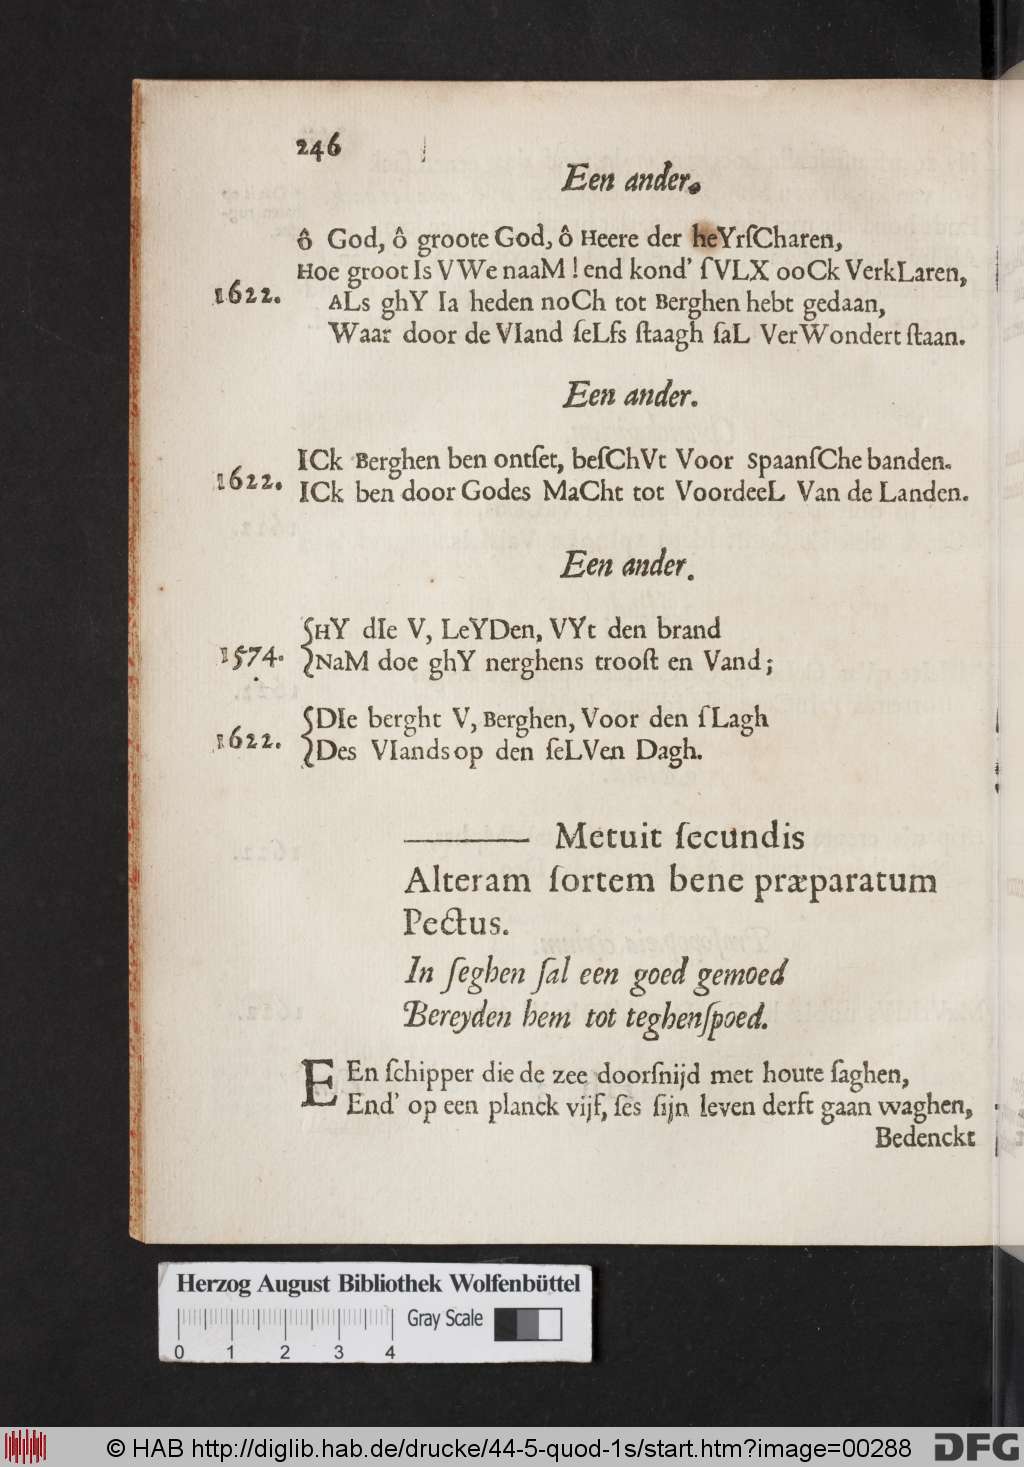 246
Een ander.
ô God, ô groote God, ô Heere der heYrſCharen,
Hoe groot Is VWe naaM ! end kond' ſVLX ooCk VerkLaren,
1622.
ALs ghY Ia heden noCh tot Berghen hebt gedaan,
Waar door de VIand ſeLfs ſtaagh ſaL VerWondert ſtaan.
Een ander.
ICk Berghen ben ontſet, beſChVt Voor SpaanſChe banden.
1622. ICk ben door Godes MaCht tot VoordeeL Van de Landen.
Een ander.
HY dIe V, LeYDen, VYt den brand
1574. NaM doe ghY nerghens trooſt en Vand;
DIe berght V, Berghen, Voor den ſLagh
1622. Des VIands op den ſeLVen Dagh.
——— Metuit ſecundis
Alteram ſortem bene præparatum
Pectus.
In ſeghen ſal een goed gemoed
Bereyden hem tot teghenſpoed.
EEn ſchipper die de zee doorſnijd met houte ſaghen,
End' op een planck vijf, ſes ſijn leven derft gaan waghen,
Bedenckt
Herzog August Bibliothek Wolfenbüttel
Gray Scale
0 1 2 3 4
© HAB http://diglib.hab.de/drucke/44-5-quod-1s/start.htm?image=00288
DFG